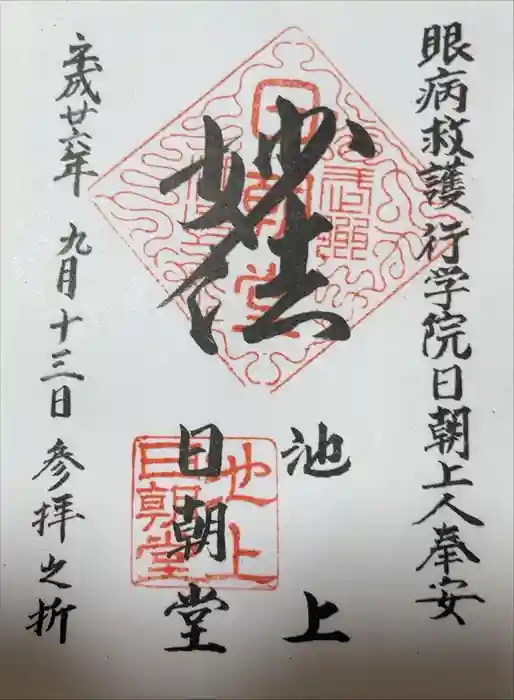 眼病救護行学院日朝上人奉安
妙法
池上
日朝堂
平成廿六年九月十三日参拝之折
日朝堂
池上
日朝堂